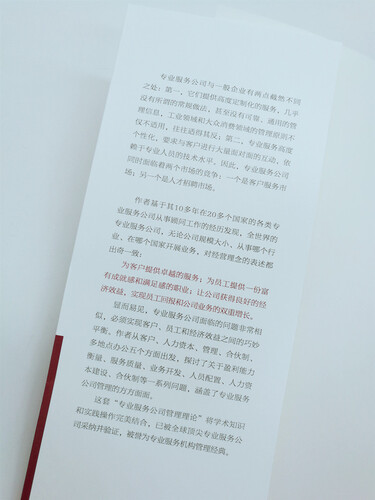 专业服务公司与一般企业有两点截然不同
之处:第一,它们提供高度定制化的服务,几乎
没有所谓的常规做法,甚至没有可靠、通用的管
理信息,工业领域和大众消费领域的管理原则不
仅不适用,往往适得其反;第二,专业服务高度
个性化,要求与客户进行大量面对面的互动,依
赖于专业人员的技术水平。因此,专业服务公司
同时面临着两个市场的竞争:一个是客户服务市
场;另一个是人才招聘市场。
作者基于其10多年在20多个国家的各类专
业服务公司从事顾问工作的经历发现,全世界的
专业服务公司,无论公司规模大小、从事哪个行
业、在哪个国家开展业务,对经营理念的表述都
出奇一致:
为客户提供卓越的服务;为员工提供一份富
有成就感和满足感的职业;让公司获得良好的经
济效益,实现员工回报和公司业务的双重增长。
显而易见,专业服务公司面临的问题非常相
似,必须实现客户、员工和经济效益之间的巧妙
平衡。作者从客户、人力资本、管理、合伙制、
多地点办公五个方面出发,探讨了关于盈利能力
衡量、服务质量、业务开发、人员配置、人力资
本建设、合伙制等一系列问题,涵盖了专业服务
公司管理的方方面面。
这套“专业服务公司管理理论”将学术知识
和实践操作完美结合,已被全球顶尖专业服务公
司采纳并验证,被誉为专业服务机构管理经典。